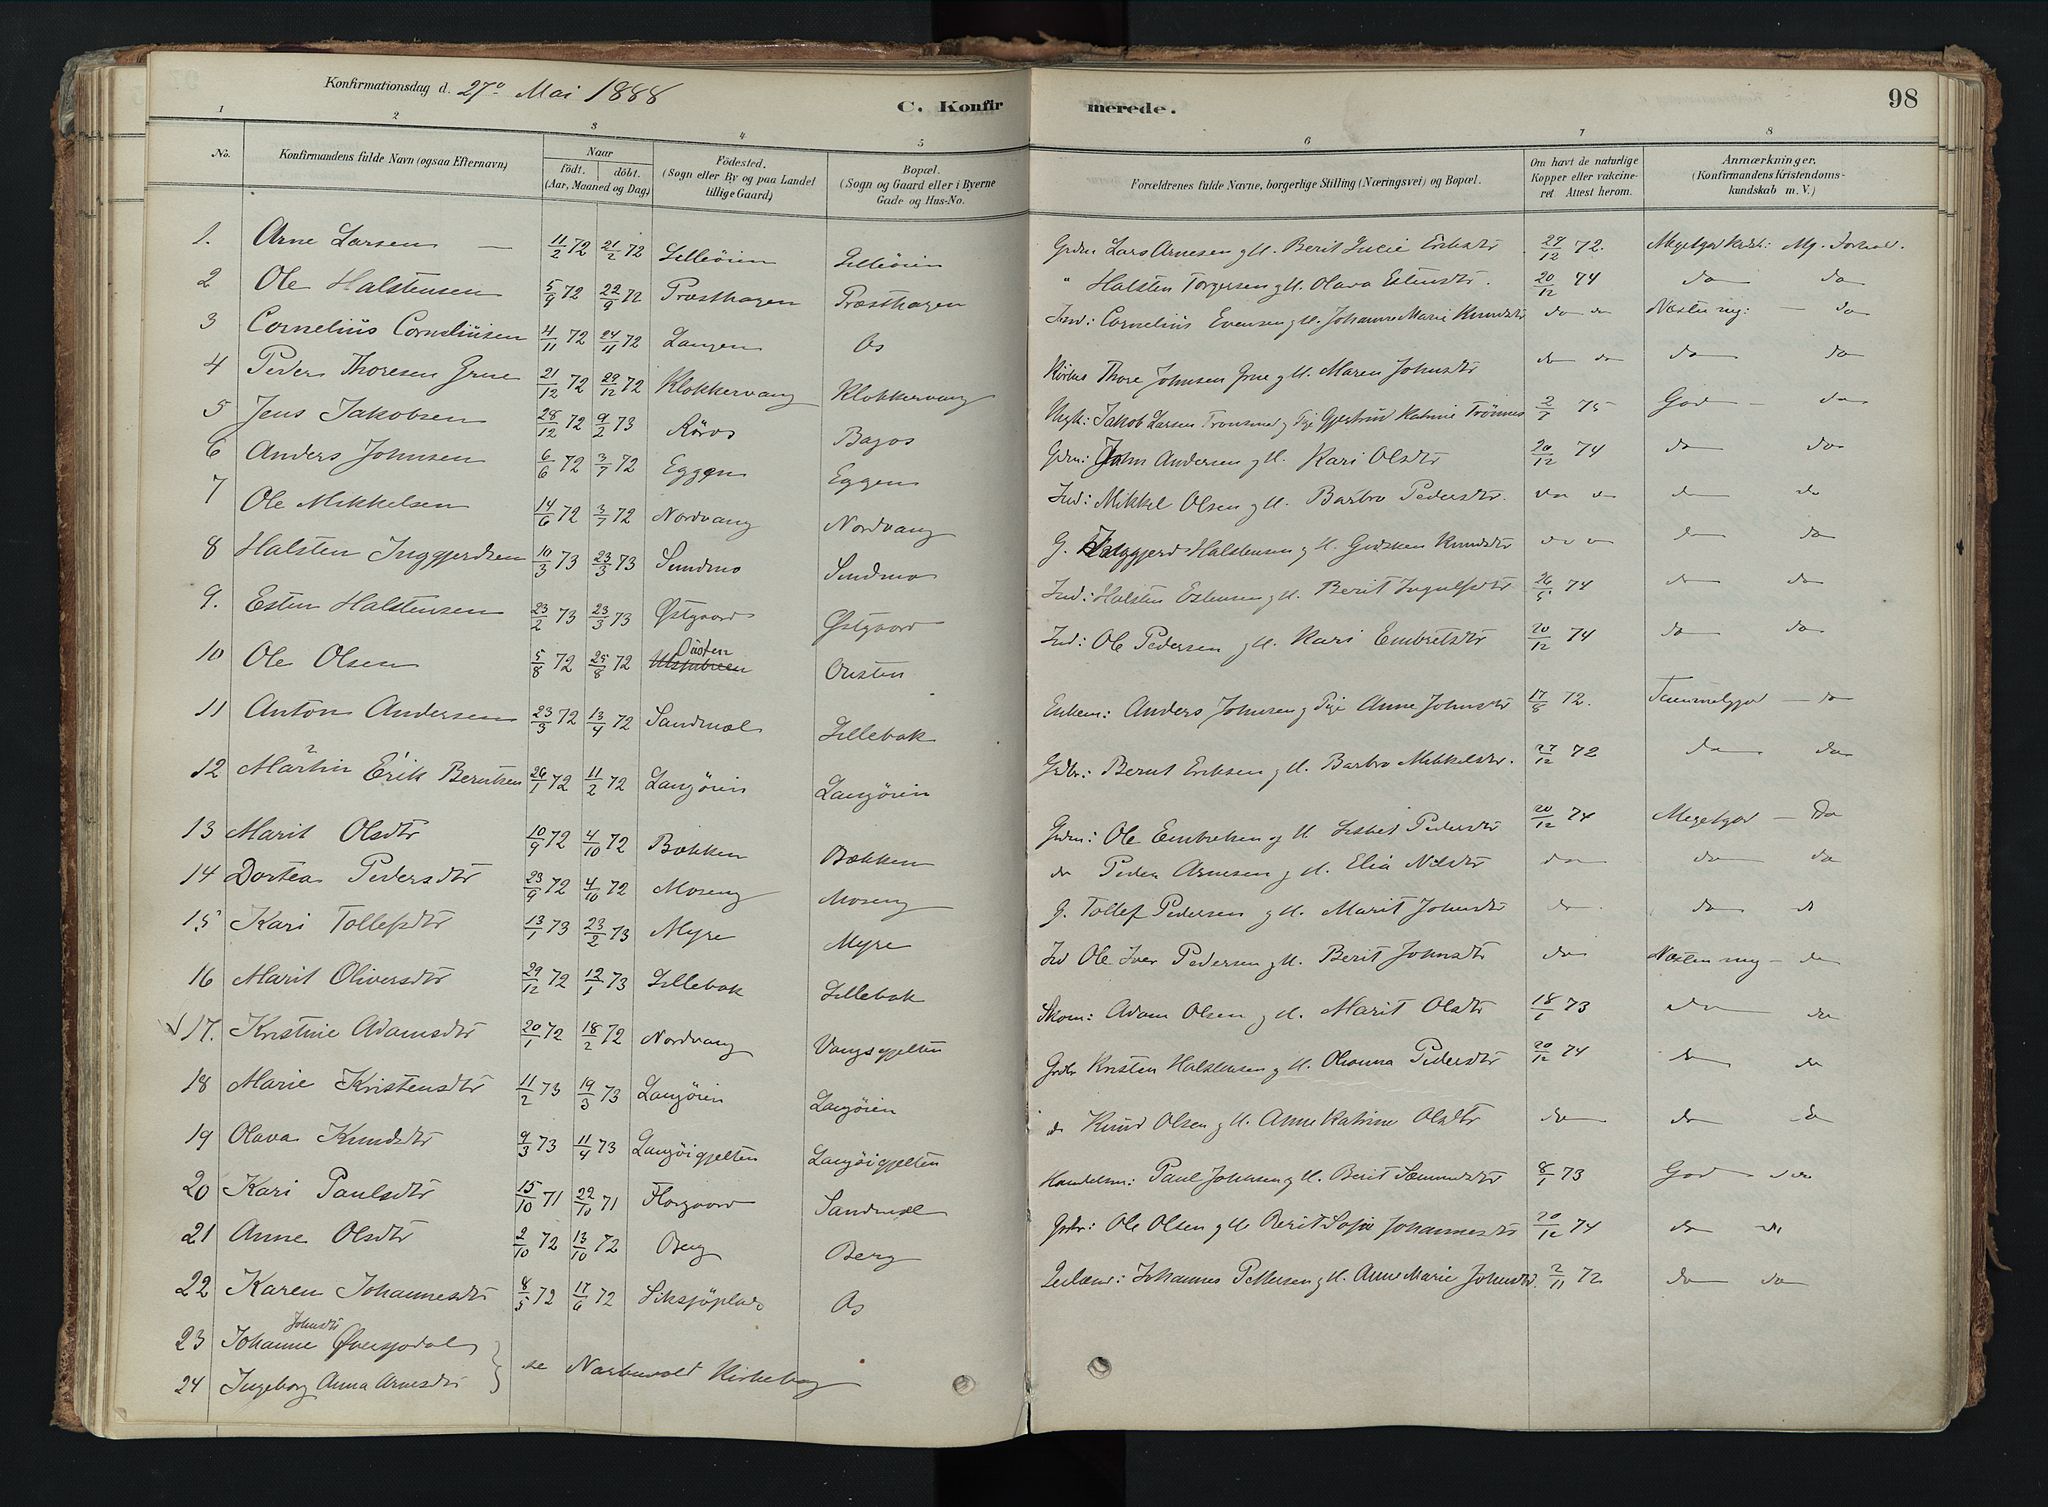 Konfirmationsdag d. 27de Mai 1888
C. Konfirmerede.
98
1 2 3 4 5 6 7 8
No. Konfirmandens fulde Navn (ogsaa Efternavn) Naar födt. döbt. (Aar, Maaned og Dag) Födested. (Sogn eller By og paa Landet tillige Gaard) Bopæl. (Sogn og Gaard eller i Byerne Gade og Hus-No. Forældrenes fulde Navne, borgerlige Stilling (Næringsvei) og Bopæl. Om havt de naturlige Kopper eller vakcineret. Attest herom. Anmærkninger. (Konfirmandens Kristendomskundskab m. V.)
1. Arne Larsen — 11/2 72 21/2 72 Lilleöien Lilleöien Grdm Lars Arnesen g H. Berit Lucie Eriksdtr 27/12 72. Megetgod Mg. Forhold.
2 Ole Halstensen 5/9 72 22/9 72 Præsthagen Præsthagen " Halsten Torgersen g H. Olava Estensdtr. 20/12 74 do do
3 Cornelius Corneliusen 4/11 72 24/11 72 Langen Os Ind: Cornelius Evensen g H. Johanne Marie Knudsdtr do do Næsten mg: — do
4 Peder Thoresen Grue 21/12 72 29/12 72 Klokkervang Klokkervang Thore Johnsen Grue g H. Maren Johnsdtr do do do do
5 Jens Jakobsen 28/12 72 9/2 73 Röros Bagos Ungk: Jakob Larsen Tronsmo g Pige Gjertrud Katrine Trönnes 75 God — do
6 Anders Johnsen 6/6 72 3/7 72 Eggen Eggen Grdm: John Andersen g H. Kari Olsdtr 20/12 74 do do
7 Ole Mikkelsen 14/6 72 3/7 72 Nordvang Nordvang Ind: Mikkel Olsen g H. Barbro Pedersdtr. do do do do
8 Halsten Inggjerdsen 10/3 73 23/3 73 Sundmo Sundmo G. Inggjerd Halstensen g H. Gudsken Knudsdtr do do do do
9. Esten Halstensen 23/2 73 23/3 73 Østgaard Østgaard Ind: Halsten Estensen g H. Berit Ingulfsdtr 26/5 74 do do
10 Ole Olsen 5/8 72 25/8 72 Ousten Ousten Ind: Ole Pedersen g H. Kari Embretsdtr 20/12 74 do do
11 Anton Andersen 23/3 72 13/4 72 Sandmæl Lillebak Enkem: Anders Johnsen g Pige Anne Johnsdtr 17/8 72. Temmeliggod — do
12 Martin Erik Berntsen 26/1 72 11/2 72 Langöien Langöien Grdbr: Bernt Eriksen g H. Barbro Mikkelsdtr. 27/12 72 do do
13 Marit Olsdtr 10/9 72 4/10 72 Bækken Bækken Grdm: Ole Embretsen og H. Lisbet Pedersdtr 20/12 74 Megetgod — do
14 Dortea Pedersdtr 23/9 72 4/10 72 Moseng Moseng do Peder Arnesen g H. Elia Nilsdtr do do do
15 Kari Tollefsdtr 13/1 73 23/2 73 Myre Myre G. Tollef Pedersen g H. Marit Johnsdtr do do do
16 Marit Oliversdtr 29/12 72 12/1 73 Lillebak Lillebak Ind Ole Iver Pedersen g H. Berit Johnsdtr do Næsten mg — do
17. Kristine Adamsdtr 20/1 72 18/2 72 Nordvang Vangsgjelten Skom: Adam Olsen g H. Marit Olsdtr 18/1 73 do do
18 Marie Kristensdtr 11/2 73 19/3 73 Langöien Langöien Grdbr Kristen Halstensen g H. Olianna Pedersdtr 20/12 74 do do
19 Olava Knudsdtr 9/3 73 11/4 73 Langöigjelten Langöigjelten do Knud Olsen g H. Anne Katrine Olsdtr do do do
20 Kari Paulsdtr 15/10 71 22/10 71 Florgaard Sandmæl Handelsm: Paul Johnsen g H. Berit Sæmundsdtr 8/1 73 God do
21 Anne Olsdtr 2/10 72 13/10 72 Berg Berg Grdbr: Ole Olsen g H Berit Sofie Johannesdtr 20/12 74 do do
22 Karen Johannesdtr 8/5 72 17/6 72 Siksjöplads Os Johannes Pettersen g H. Anne Marie Johnsdtr. 2/11 72 do do
23 Johanne Johnsdtr Øversjødal
24 Ingeborg Anna Arnesdtr se Narbuvold Kirkebog